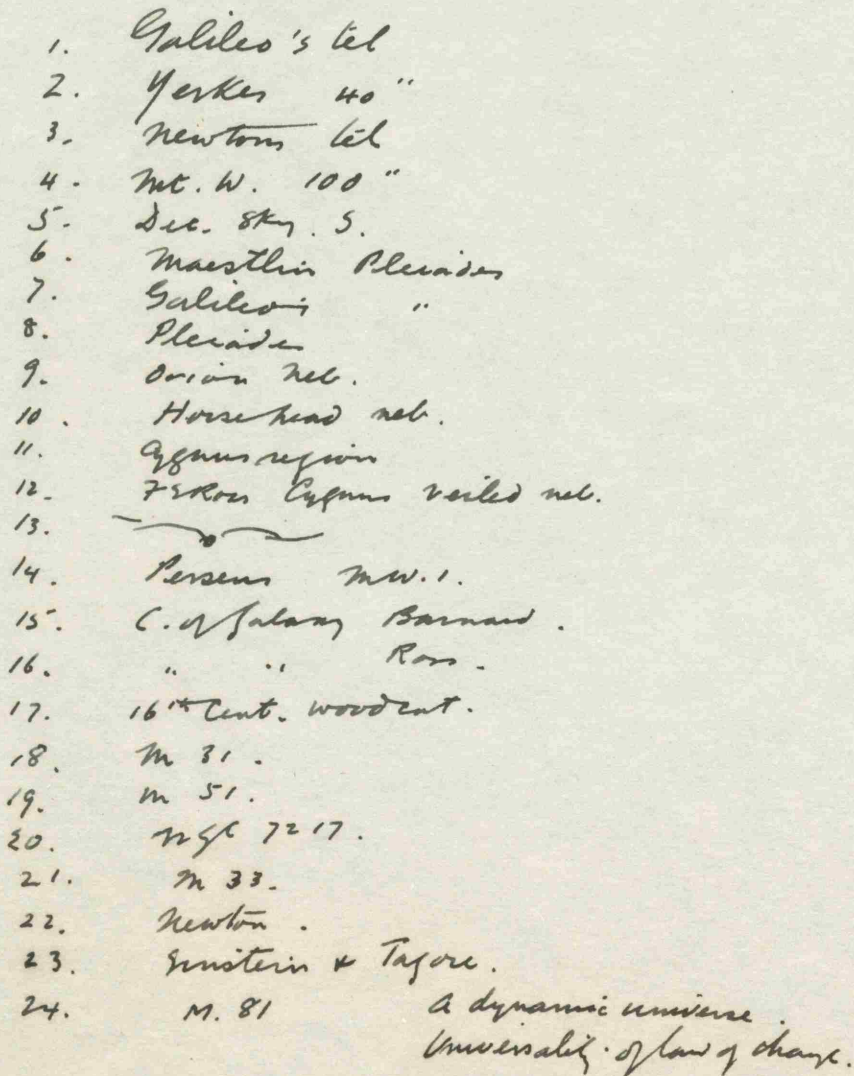 1. Galileo's tel
2. Yerkes 40"
3. Newtons tel
4. Mt. W. 100"
5. Dec. Sky. S.
6. Maestlin Pleiades
7. Galileo's "
8. Pleiades
9. Orion Neb.
10. Horsehead neb.
11. Cygnus region
12. F E Ross Cygnus veiled neb.
13.
14. Perseus M.W. 1.
15. C. of Galaxy Barnard.
16. " " Ross.
17. 16th Cent. woodcut.
18. M 31.
19. M 51.
20. NGC 7217.
21. M 33.
22. Newton.
23. Einstein & Tagore.
24. M. 81 A dynamic universe.
Universality of law of change.